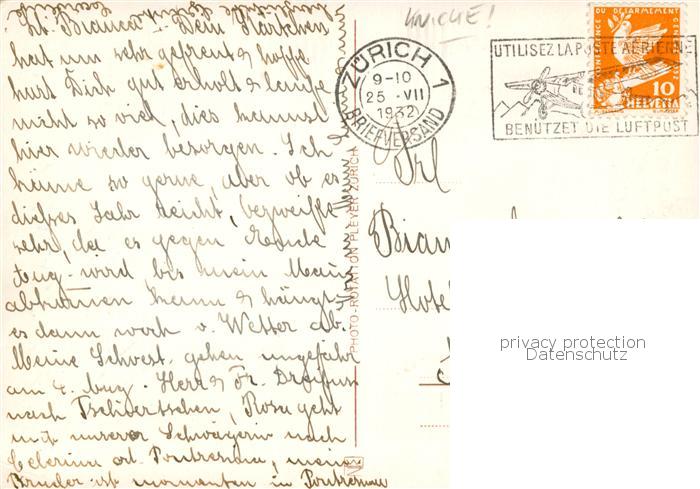 KNICKE!
Lb. Bianca! - Dein Kärtchen
hat uns sehr gefreut & hoffe
hast Dich gut erholt & laufe
nicht so viel, dies kannst
hier wieder besorgen. Ich
käme so gerne, aber ob es
dieses Jahr reicht, bezweifle
sehr, da es gegen Ende
Aug. wird bis mein Mann
abkommen kann & hängt
es dann noch v. Wetter ab.
Meine Schwest. gehen ungefähr
am 4. Aug. Herr & Fr. Dreifuss
nach Tschiertschen, Rosa geht
mit unserer Schwägerin nach
Celerina od. Pontresina, mein
Bruder ist momentan in Pontresina
PHOTO-ROTATION PLEYER ZÜRICH
ZÜRICH 1
9-10
25. VII
1932
BRIEFVERSAND
UTILISEZ LA POSTE AERIENNE
BENÜTZET DIE LUFTPOST
10
HELVETIA
Frl
Bian
Hote
privacy protection
Datenschutz